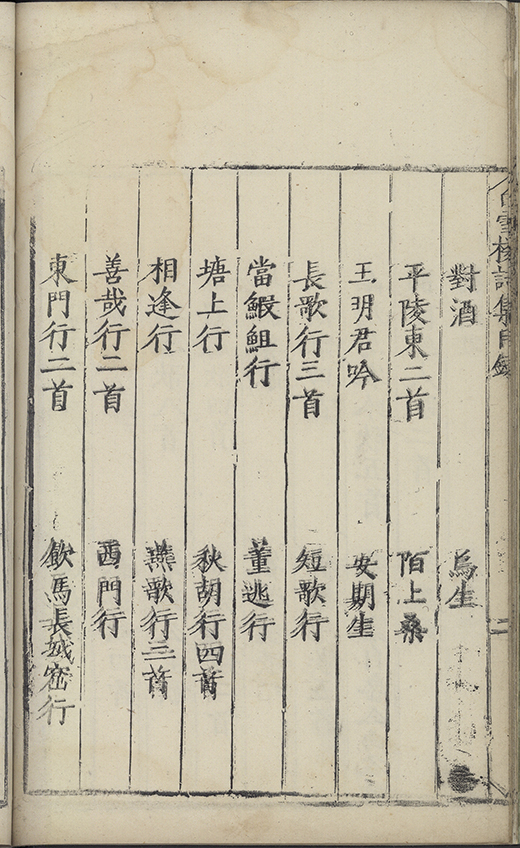 白雪樓詩集目錄
二
對酒 烏生
平陵東二首 陌上桑
王明君吟 安期生
長歌行三首 短歌行
當鰕䱇行 董逃行
塘上行 秋胡行四首
相逢行 燕歌行三首
善哉行二首 西門行
東門行二首 飲馬長城窟行